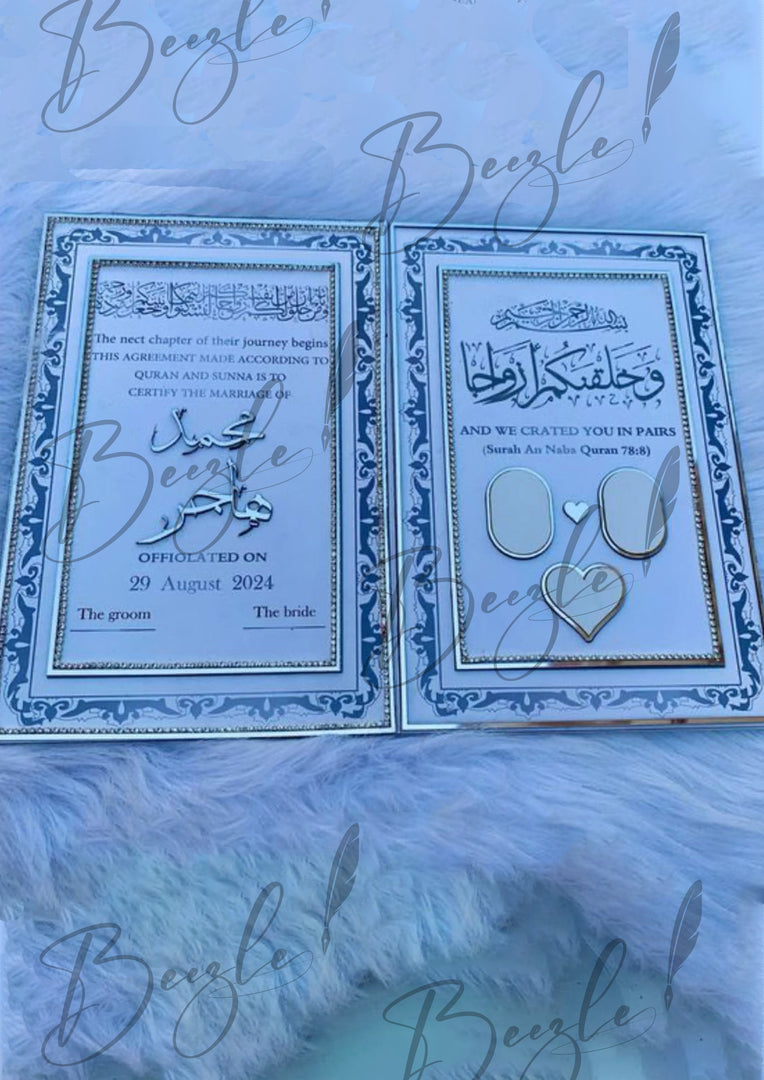 Beezle!
Beezle!
The nect chapter of their journey begins
THIS AGREEMENT MADE ACCORDING TO
QURAN AND SUNNA IS TO
CERTIFY THE MARRIAGE OF
محمد
هاجر
OFFIOLATED ON
29 August 2024
The groom The bride
بسم الله الرحمن الرحيم
وخلقنكم أزواجا
AND WE CRATED YOU IN PAIRS
(Surah An Naba Quran 78:8)
Beezle!
Beezle!
Beezle!
Beezle!